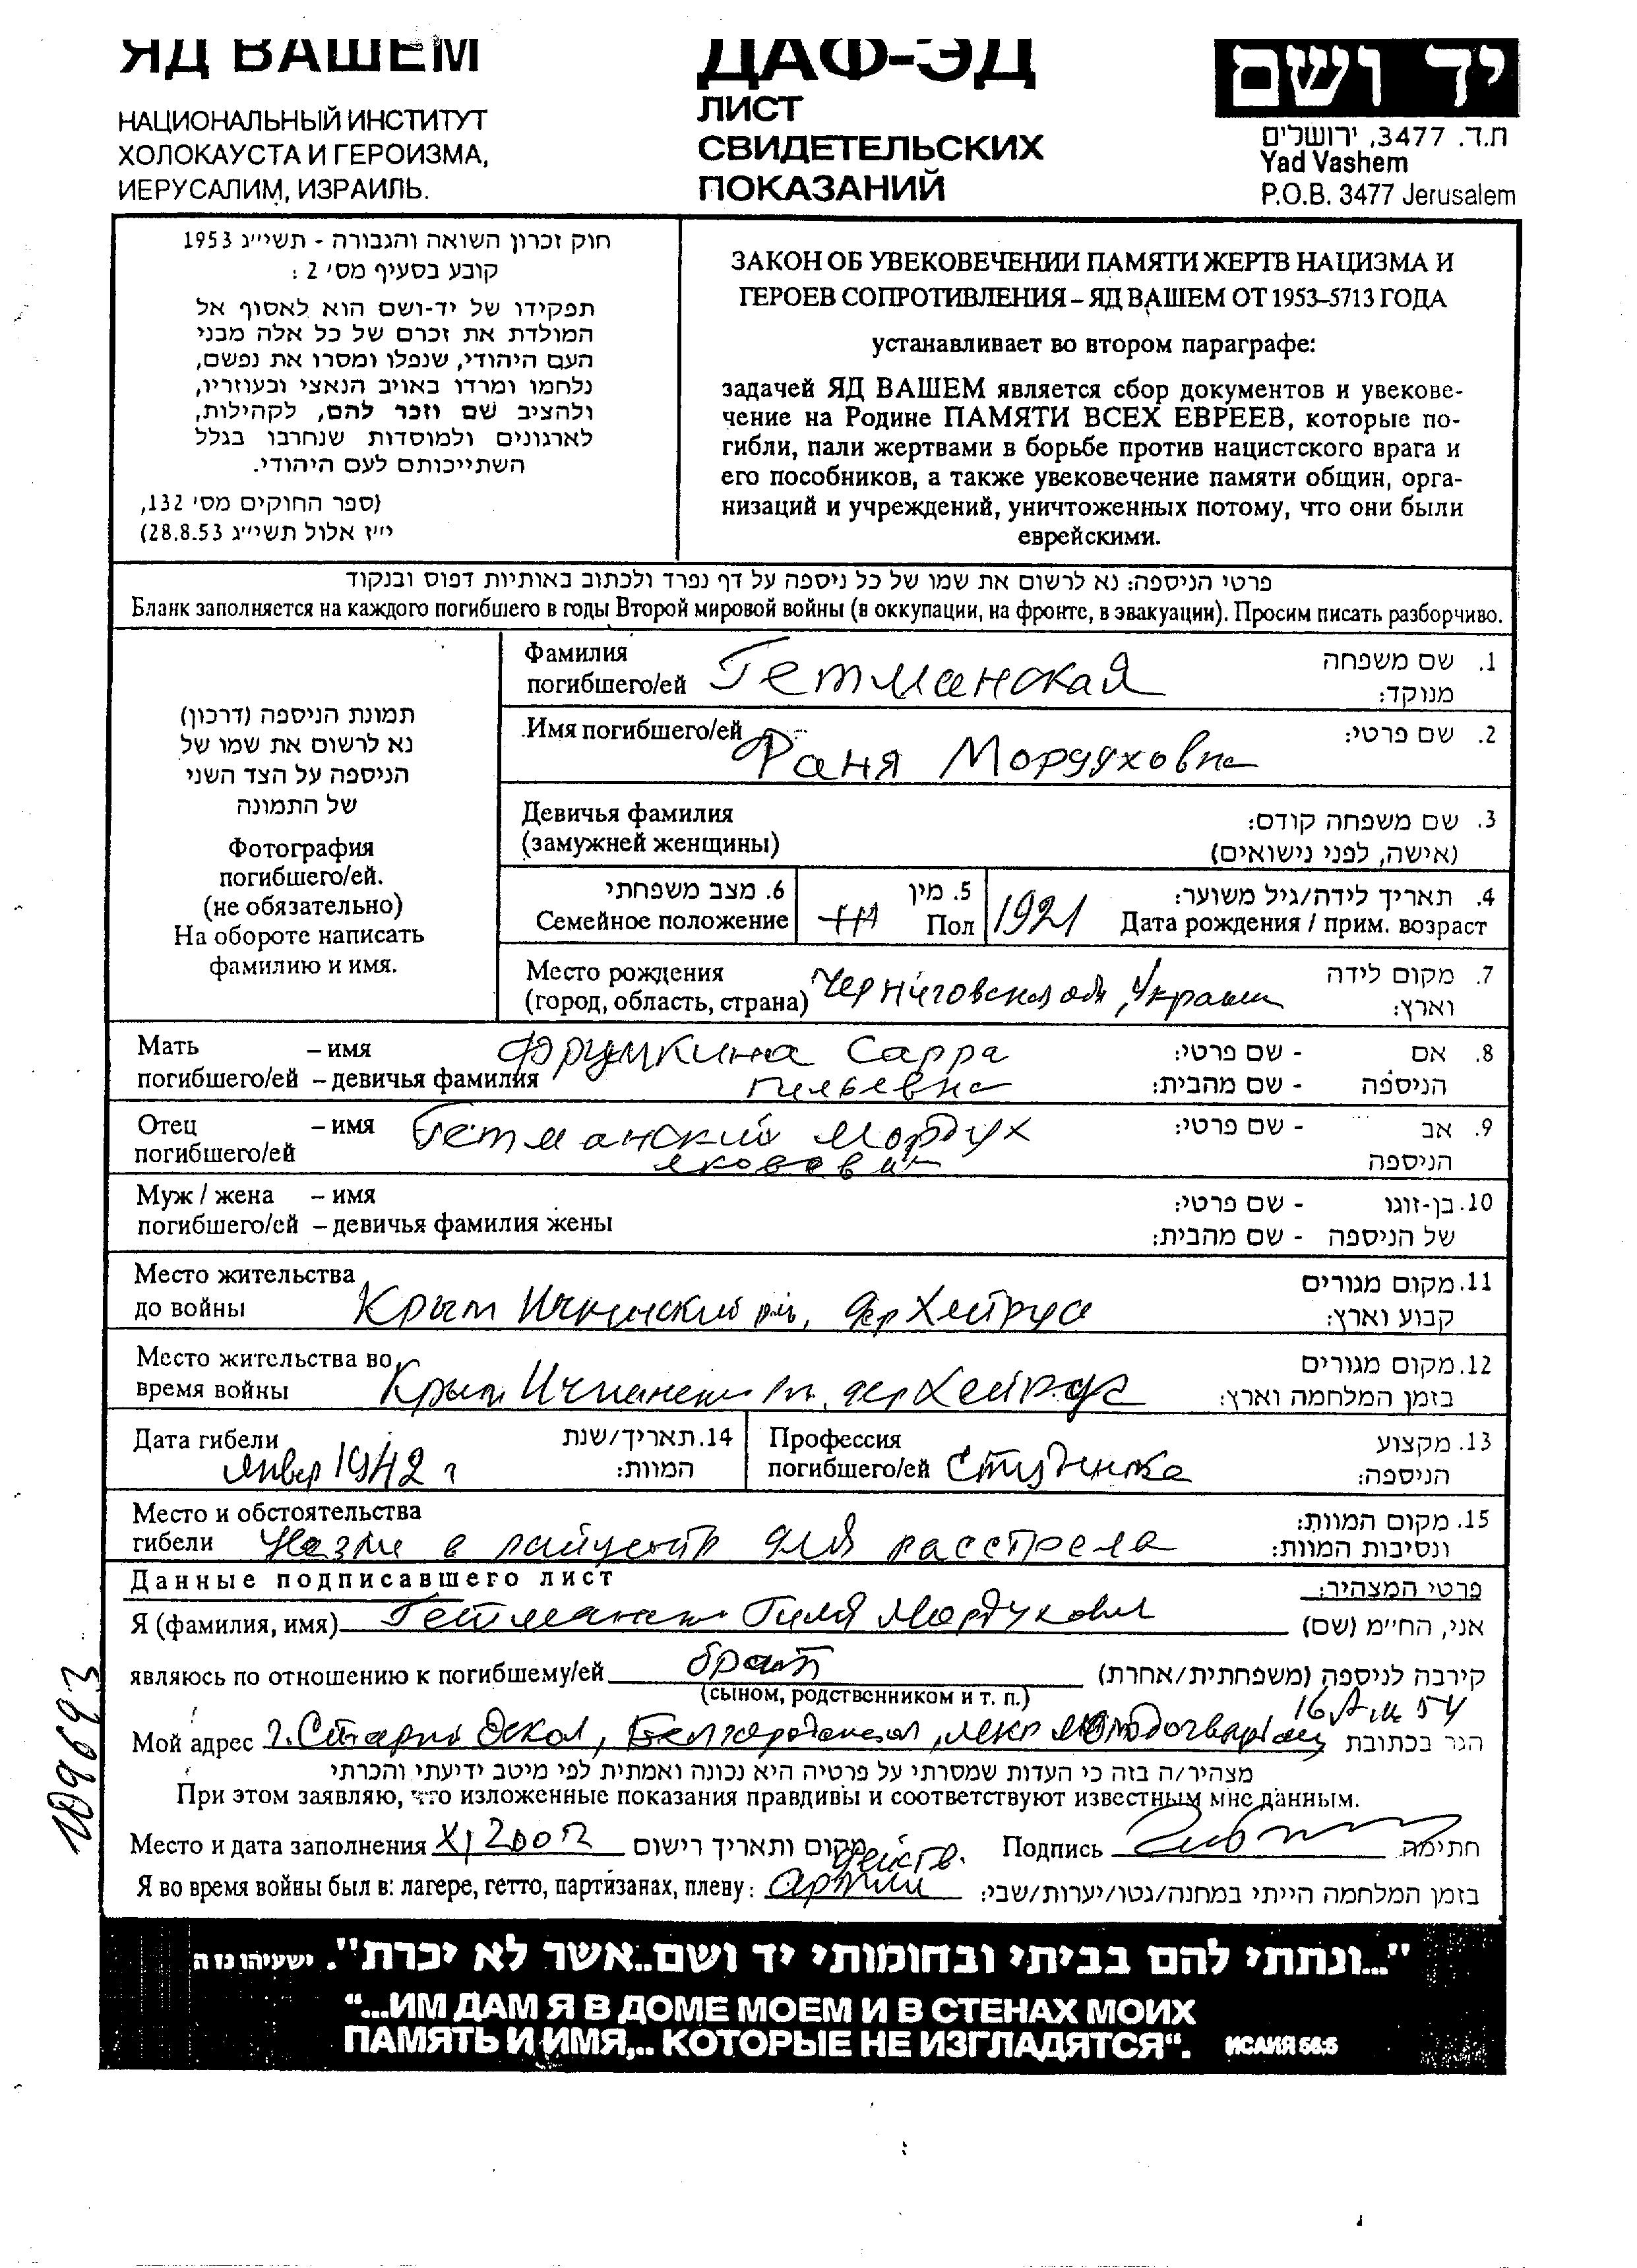 ЯД ВАШЕМ
НАЦИОНАЛЬНЫЙ ИНСТИТУТ
ХОЛОКАУСТА И ГЕРОИЗМА,
ИЕРУСАЛИМ, ИЗРАИЛЬ.
ДАФ-ЭД
ЛИСТ
СВИДЕТЕЛЬСКИХ
ПОКАЗАНИЙ
יד ושם
ת.ד. 3477, ירושלים
Yad Vashem
P.O.B. 3477 Jerusalem
חוק זכרון השואה והגבורה - תשי״ג 1953
קובע בסעיף מס׳ 2 :
תפקידו של יד-ושם הוא לאסוף אל
המולדת את זכרם של כל אלה מבני
העם היהודי, שנפלו ומסרו את נפשם,
נלחמו ומרדו באויב הנאצי ובעוזריו,
ולהציב שם וזכר להם, לקהילות,
לארגונים ולמוסדות שנחרבו בגלל
השתייכותם לעם היהודי.
(ספר החוקים מס׳ 132,
י״ז אלול תשי״ג 28.8.53)
ЗАКОН ОБ УВЕКОВЕЧЕНИИ ПАМЯТИ ЖЕРТВ НАЦИЗМА И
ГЕРОЕВ СОПРОТИВЛЕНИЯ – ЯД ВАШЕМ ОТ 1953–5713 ГОДА
устанавливает во втором параграфе:
задачей ЯД ВАШЕМ является сбор документов и увекове-
чение на Родине ПАМЯТИ ВСЕХ ЕВРЕЕВ, которые по-
гибли, пали жертвами в борьбе против нацистского врага и
его пособников, а также увековечение памяти общин, орга-
низаций и учреждений, уничтоженных потому, что они были
еврейскими.
פרטי הניספה: נא לרשום את שמו של כל ניספה על דף נפרד ולכתוב באותיות דפוס ובנקוד
Бланк заполняется на каждого погибшего в годы Второй мировой войны (в оккупации, на фронте, в эвакуации). Просим писать разборчиво.
תמונת הניספה (דרכון)
נא לרשום את שמו של
הניספה על הצד השני
של התמונה
Фотография
погибшего/ей.
(не обязательно)
На обороте написать
фамилию и имя.
Фамилия
погибшего/ей Гетманская
1. שם משפחה
מנוקד:
Имя погибшего/ей Фаня Мордуховна
2. שם פרטי:
Девичья фамилия
(замужней женщины)
3. שם משפחה קודם:
(אישה, לפני נישואים)
6. מצב משפחתי
Семейное положение
5. מין
Пол
1921
4. תאריך לידה/גיל משוער:
Дата рождения / прим. возраст
Место рождения
(город, область, страна) Черниговская обл, Украина
7. מקום לידה
וארץ:
Мать – имя Фрумкина Сарра
погибшего/ей – девичья фамилия Гильевна
8. אם - שם פרטי:
הניספה - שם מהבית:
Отец – имя Гетманский Мордух
погибшего/ей Якович
9. אב - שם פרטי:
הניספה
Муж / жена – имя
погибшего/ей – девичья фамилия жены
10. בן-זוגו - שם פרטי:
של הניספה - שם מהבית:
Место жительства
до войны Крым Ичкинский рн, дер Хейрус
11. מקום מגורים
קבוע וארץ:
Место жительства во
время войны Крым дер Хейрус
12. מקום מגורים
בזמן המלחמה וארץ:
Дата гибели
январ 1942 г
14. תאריך/שנת
המוות:
Профессия
погибшего/ей Студентка
13. מקצוע
הניספה:
Место и обстоятельства
гибели в райцентр для расстрела
15. מקום המוות:
ונסיבות המוות:
Данные подписавшего лист
פרטי המצהיר:
Я (фамилия, имя) Гетманский Гиля Мордухович אני, הח״מ (שם)
являюсь по отношению к погибшему/ей брат קירבה לניספה (משפחתית/אחרת)
(сыном, родственником и т. п.)
Мой адрес г. Старый Оскол, Белгородская הגר בכתובת
מצהיר/ה בזה כי העדות שמסרתי על פרטיה היא נכונה ואמתית לפי מיטב ידיעתי והכרתי
При этом заявляю, что изложенные показания правдивы и соответствуют известным мне данным.
Место и дата заполнения XI 2000 מקום ותאריך רישום Подпись חתימה
Я во время войны был в: лагере, гетто, партизанах, плену: Армии בזמן המלחמה הייתי במחנה/גטו/יערות/שבי:
109693
"...ונתתי להם בביתי ובחומותי יד ושם..אשר לא יכרת". ישעיהו נו ה
“...ИМ ДАМ Я В ДОМЕ МОЕМ И В СТЕНАХ МОИХ
ПАМЯТЬ И ИМЯ,.. КОТОРЫЕ НЕ ИЗГЛАДЯТСЯ“. ИСАИЯ 56:5